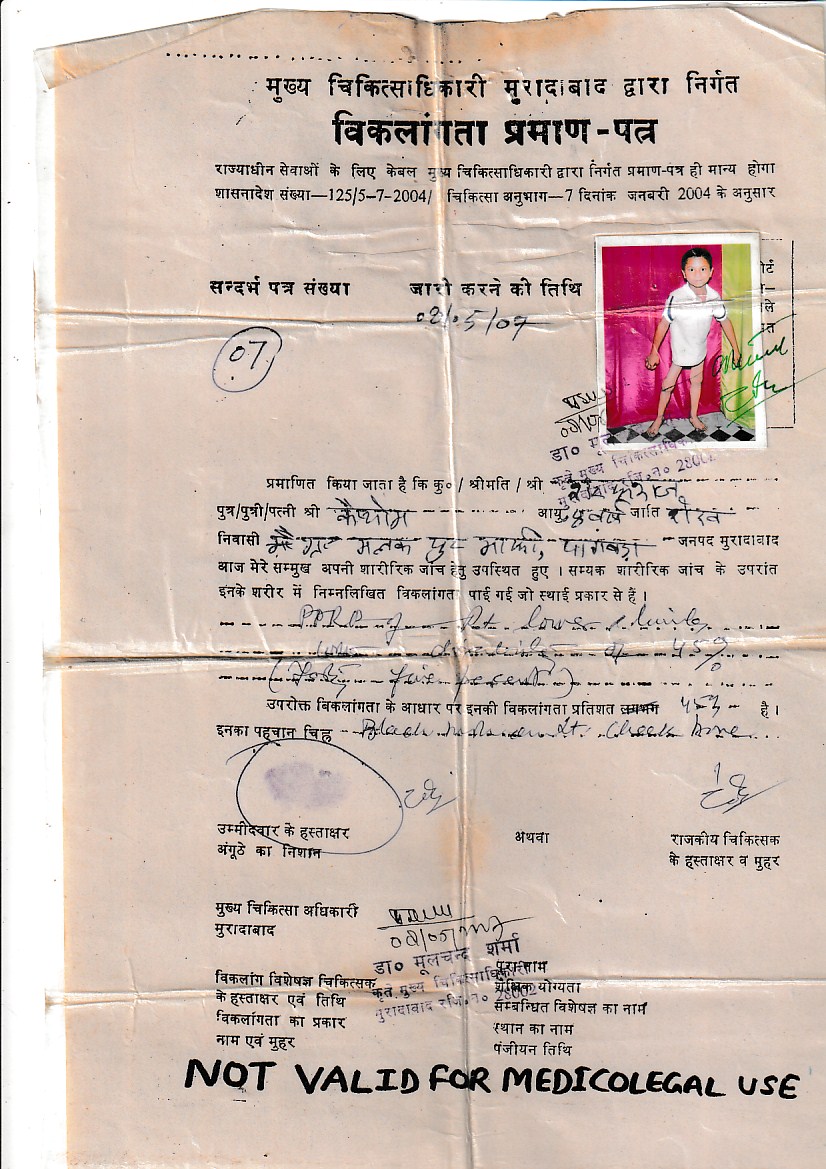 मुख्य चिकित्साधिकारी मुरादाबाद द्वारा निर्गत
विकलांगता प्रमाण-पत्र
राज्याधीन सेवाओं के लिए केबल मुख्य चिकित्साधिकारी द्वारा निर्गत प्रमाण-पत्र ही मान्य होगा
शासनादेश संख्या—125/5-7-2004/ चिकित्सा अनुभाग—7 दिनांक जनबरी 2004 के अनुसार
सन्दर्भ पत्र संख्या जारी करने की तिथि
02/05/07
07
डा० मूल
कृते मुख्य चिकित्साधिकारी
मुरादाबाद रजि.न० 28002
प्रमाणित किया जाता है कि कु० / श्रीमति / श्री
पुत्र/पुत्री/पत्नी श्री आयु वर्ष जाति शेख
निवासी जनपद मुरादाबाद
आज मेरे सम्मुख अपनी शारीरिक जांच हेतु उपस्थित हुए । सम्यक शारीरिक जांच के उपरांत
इनके शरीर में निम्नलिखित विकलांगता पाई गई जो स्थाई प्रकार से हैं ।
PPRP Rt. lower limb
45%
(Forty five percent)
उपरोक्त बिकलांगता के आधार पर इनकी विकलांगता प्रतिशत लगभग 45% है ।
इनका पहचान चिह्न Black mole on Lt. cheek bone
उम्मीदवार के हस्ताक्षर अथवा राजकीय चिकित्सक
अंगूठे का निशान के हस्ताक्षर व मुहर
मुख्य चिकित्सा अधिकारी
मुरादाबाद
डा० मूलचन्द शर्मा
कृते मुख्य चिकित्साधिकारी
मुरादाबाद रजि.न० 28002
विकलांग विशेषज्ञ चिकित्सक पूरा नाम
के हस्ताक्षर एवं तिथि शैक्षिक योग्यता
विकलांगता का प्रकार सम्बन्धित विशेषज्ञ का नाम
नाम एवं मुहर स्थान का नाम
पंजीयन तिथि
NOT VALID FOR MEDICOLEGAL USE